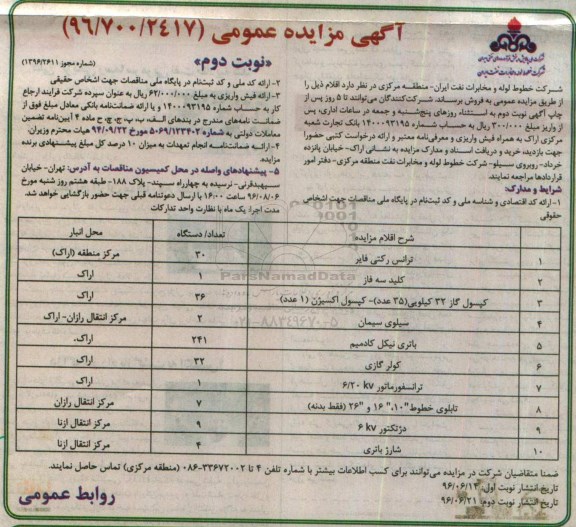 آگهی مزایده عمومی (۹۶/۷۰۰/۲۴۱۷)
«نوبت دوم»
(شماره مجوز ۱۳۹۶/۲۶۱۱)
شرکت خطوط لوله و مخابرات نفت ایران- منطقه مرکزی در نظر دارد اقلام ذیل را
از طریق مزایده عمومی به فروش برساند. شرکت‌کنندگان می‌توانند تا ۵ روز پس از
چاپ آگهی نوبت دوم به استثناء روزهای پنج‌شنبه و جمعه در ساعات اداری، پس
از واریز مبلغ ۳۰۰/۰۰۰ ریال به حساب شماره ۱۴۰۰۰۹۳۱۹۵ بانک تجارت شعبه
مرکزی اراک به همراه فیش واریزی و معرفی‌نامه معتبر و ارائه درخواست کتبی حضورا
جهت بازدید خرید و دریافت اسناد و مدارک مزایده به نشانی اراک- خیابان پانزده
خرداد- روبروی سیلو- شرکت خطوط لوله و مخابرات نفت منطقه مرکزی- دفتر امور
قراردادها مراجعه نمایند.
شرایط و مدارک:
۱- ارائه کد اقتصادی و شناسه ملی و کد ثبت‌نام در پایگاه ملی مناقصات جهت اشخاص
حقوقی
۲- ارائه کد ملی و کد ثبت‌نام در پایگاه ملی مناقصات جهت اشخاص حقیقی
۳- ارائه فیش واریزی به مبلغ ۶۲/۰۰۰/۰۰۰ ریال به عنوان سپرده شرکت فرایند ارجاع
کار به حساب شماره ۱۴۰۰۰۹۳۱۹۵ و یا ارائه ضمانت‌نامه بانکی معادل مبلغ فوق از
ضمانت نامه‌های مندرج در بندهای الف، ب، پ، ج، چ، ح ماده ۴ آیین‌نامه تضمین
معاملات دولتی به شماره ۵۰۶۵۹/۱۲۳۴۰۲ مورخ ۹۴/۰۹/۲۲ هیات محترم وزیران.
۴- ارائه ضمانت‌نامه انجام تعهدات به میزان ۱۰ درصد کل مبلغ پیشنهادی برنده
مزایده.
۵- پیشنهادهای واصله در محل کمیسیون مناقصات به آدرس: تهران- خیابان
سپهبدقرنی- نرسیده به چهارراه سپند- پلاک ۱۸۸- طبقه هشتم روز شنبه مورخ
۹۶/۰۸/۰۶ ساعت ۱۶:۰۰ با ارسال دعوتنامه قبلی جهت حضور بازگشایی خواهد شد.
مدت اجرا: یک ماه با نظارت واحد تدارکات
شرح اقلام مزایده تعداد/ دستگاه محل انبار
۱ ترانس رکتی فایر ۳۰ مرکز منطقه (اراک)
۲ کلید سه فاز ۱ اراک
۳ کپسول گاز ۳۲ کیلویی(۳۵ عدد)- کپسول اکسیژن (۱ عدد) ۳۶ اراک
۴ سیلوی سیمان ۲ مرکز انتقال رازان- اراک
۵ باتری نیکل کادمیم ۲۴۱ اراک.
۶ کولر گازی ۳۲ اراک
۷ ترانسفورماتور ۶/۲۰ kv ۱ اراک
۸ تابلوی خطوط "۱۰، "۱۶ و "۲۶ (فقط بدنه) ۷ مرکز انتقال رازان
۹ دژنکتور ۶ kv ۹ مرکز انتقال ازنا
۱۰ شارژ باتری ۴ مرکز انتقال ازنا
ParsNamadData
۰۲۱-۸۸۳۴۹۶۷۰-۵
ضمنا متقاضیان شرکت در مزایده می‌توانند برای کسب اطلاعات بیشتر با شماره تلفن ۴ تا ۳۳۶۷۲۰۰۲-۰۸۶ (منطقه مرکزی) تماس حاصل نمایند.
تاریخ انتشار نوبت اول: ۹۶/۰۶/۱۴
تاریخ انتشار نوبت دوم: ۹۶/۰۶/۲۱
روابط عمومی